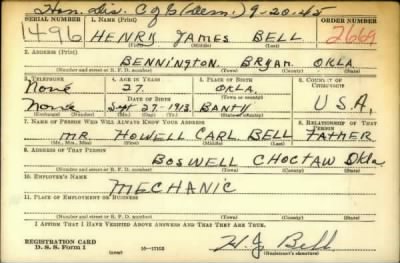 Hon. Dis. C of S (Dem.) 9-20-45
SERIAL NUMBER 1. NAME (Print) ORDER NUMBER
1496 HENRY JAMES BELL 2669
(First) (Middle) (Last)
2. ADDRESS (Print)
BENNINGTON BRYAN OKLA
(Number and street or R. F. D. number) (Town) (County) (State)
3. TELEPHONE 4. AGE IN YEARS 5. PLACE OF BIRTH 6. COUNTRY OF CITIZENSHIP
None 27. OKLA.
DATE OF BIRTH (Town or county)
None Sept 27-1913. BANTY U.S.A.
(Exchange) (Number) (Mo.) (Day) (Yr.) (State or country)
7. NAME OF PERSON WHO WILL ALWAYS KNOW YOUR ADDRESS 8. RELATIONSHIP OF THAT PERSON
MR. HOWELL CARL BELL FATHER
(Mr., Mrs., Miss) (First) (Middle) (Last)
9. ADDRESS OF THAT PERSON
BOSWELL CHOCTAW Okla
(Number and street or R. F. D. number) (Town) (County) (State)
10. EMPLOYER'S NAME
MECHANIC
11. PLACE OF EMPLOYMENT OR BUSINESS
(Number and street or R. F. D. number) (Town) (County) (State)
I AFFIRM THAT I HAVE VERIFIED ABOVE ANSWERS AND THAT THEY ARE TRUE.
REGISTRATION CARD
D. S. S. Form 1 (over) 16-17105 H. J. Bell
(Registrant's signature)